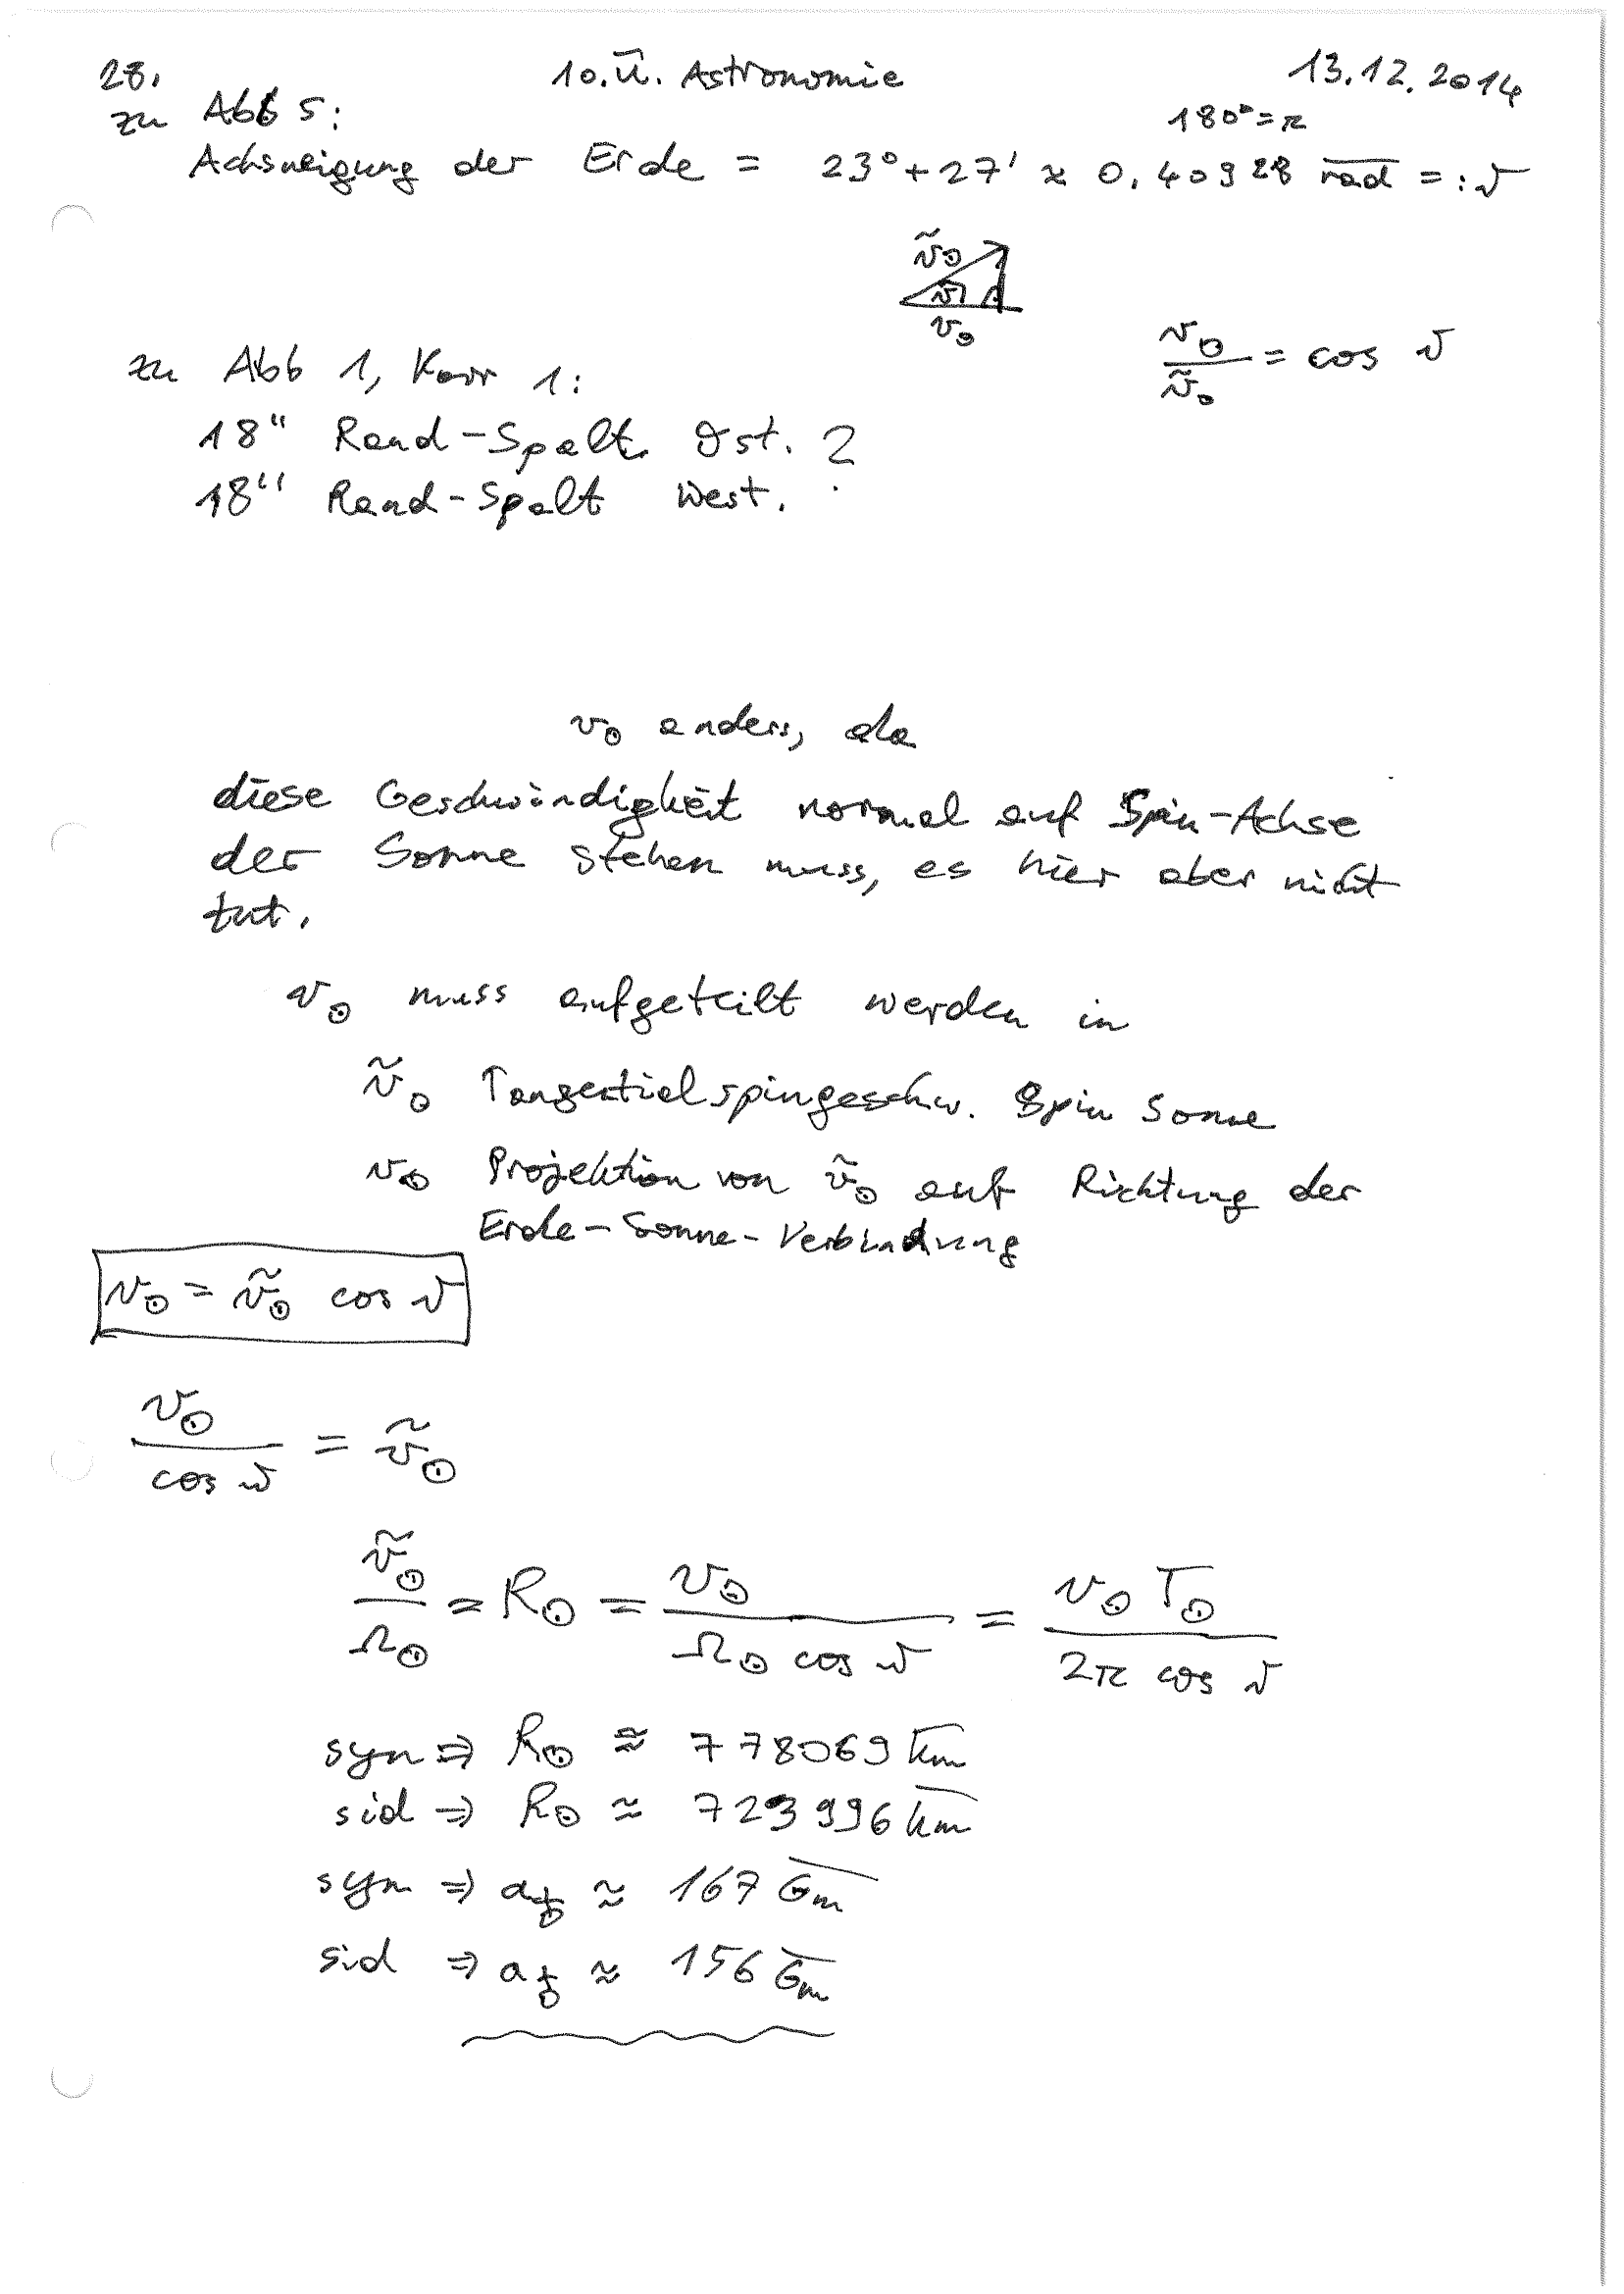 28. 10.Ü. Astronomie 13.12.2014
zu Abb 5: 180°=π
Achsneigung der Erde = 23°+27' ≈ 0.40928 rad =: ϑ
ṽ⊙
ϑ
v⊙
v⊙/ṽ⊙ = cos ϑ
zu Abb 1, Korr 1:
18" Rand-Spalt. Ost. ?
18" Rand-Spalt West.
v⊙ anders, da
diese Geschwindigkeit normal auf Spin-Achse
der Sonne stehen muss, es hier aber nicht
tut.
v⊙ muss aufgeteilt werden in
ṽ⊙ Tangentialspingeschw. Spin Sonne
v⊙ Projektion von ṽ⊙ auf Richtung der
Erde-Sonne-Verbindung
v⊙ = ṽ⊙ cos ϑ
v⊙/cos ϑ = ṽ⊙
ṽ⊙/Ω⊙ = R⊙ = v⊙/(Ω⊙ cos ϑ) = v⊙ T⊙/(2π cos ϑ)
syn ⇒ R⊙ ≈ 778069 km
sid ⇒ R⊙ ≈ 723996 km
syn ⇒ a♁ ≈ 167 Gm
sid ⇒ a♁ ≈ 156 Gm